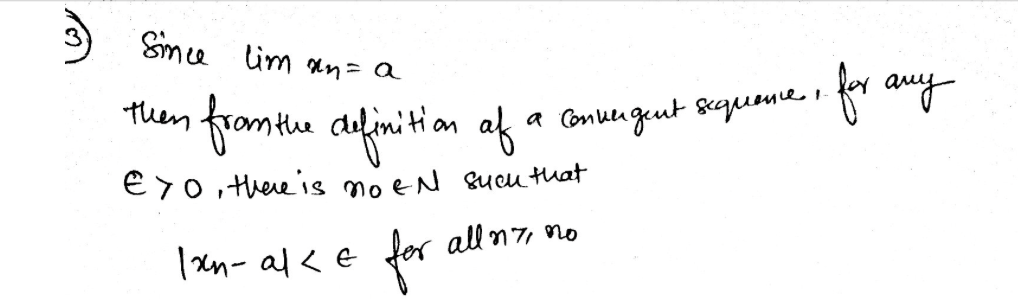 3) Since lim xn = a
then from the definition of a convergent sequence, for any
ϵ > 0, there is no ∈ N such that
|xn - a| < ϵ for all n ≥ no